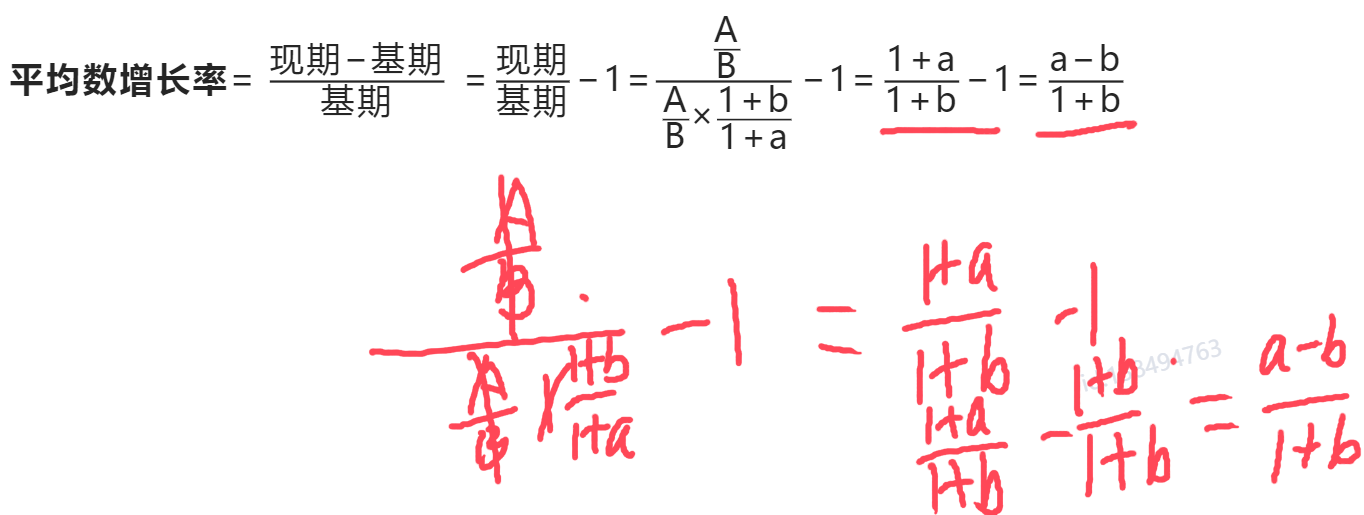 平均数增长率 = (现期 − 基期)/基期 = 现期/基期 − 1 = (A/B)/(A/B × (1+b)/(1+a)) − 1 = (1+a)/(1+b) − 1 = (a−b)/(1+b)
(A/B)/(A/B × (1+b)/(1+a)) − 1 = (1+a)/(1+b) − 1
(1+a)/(1+b) − (1+b)/(1+b) = (a−b)/(1+b)